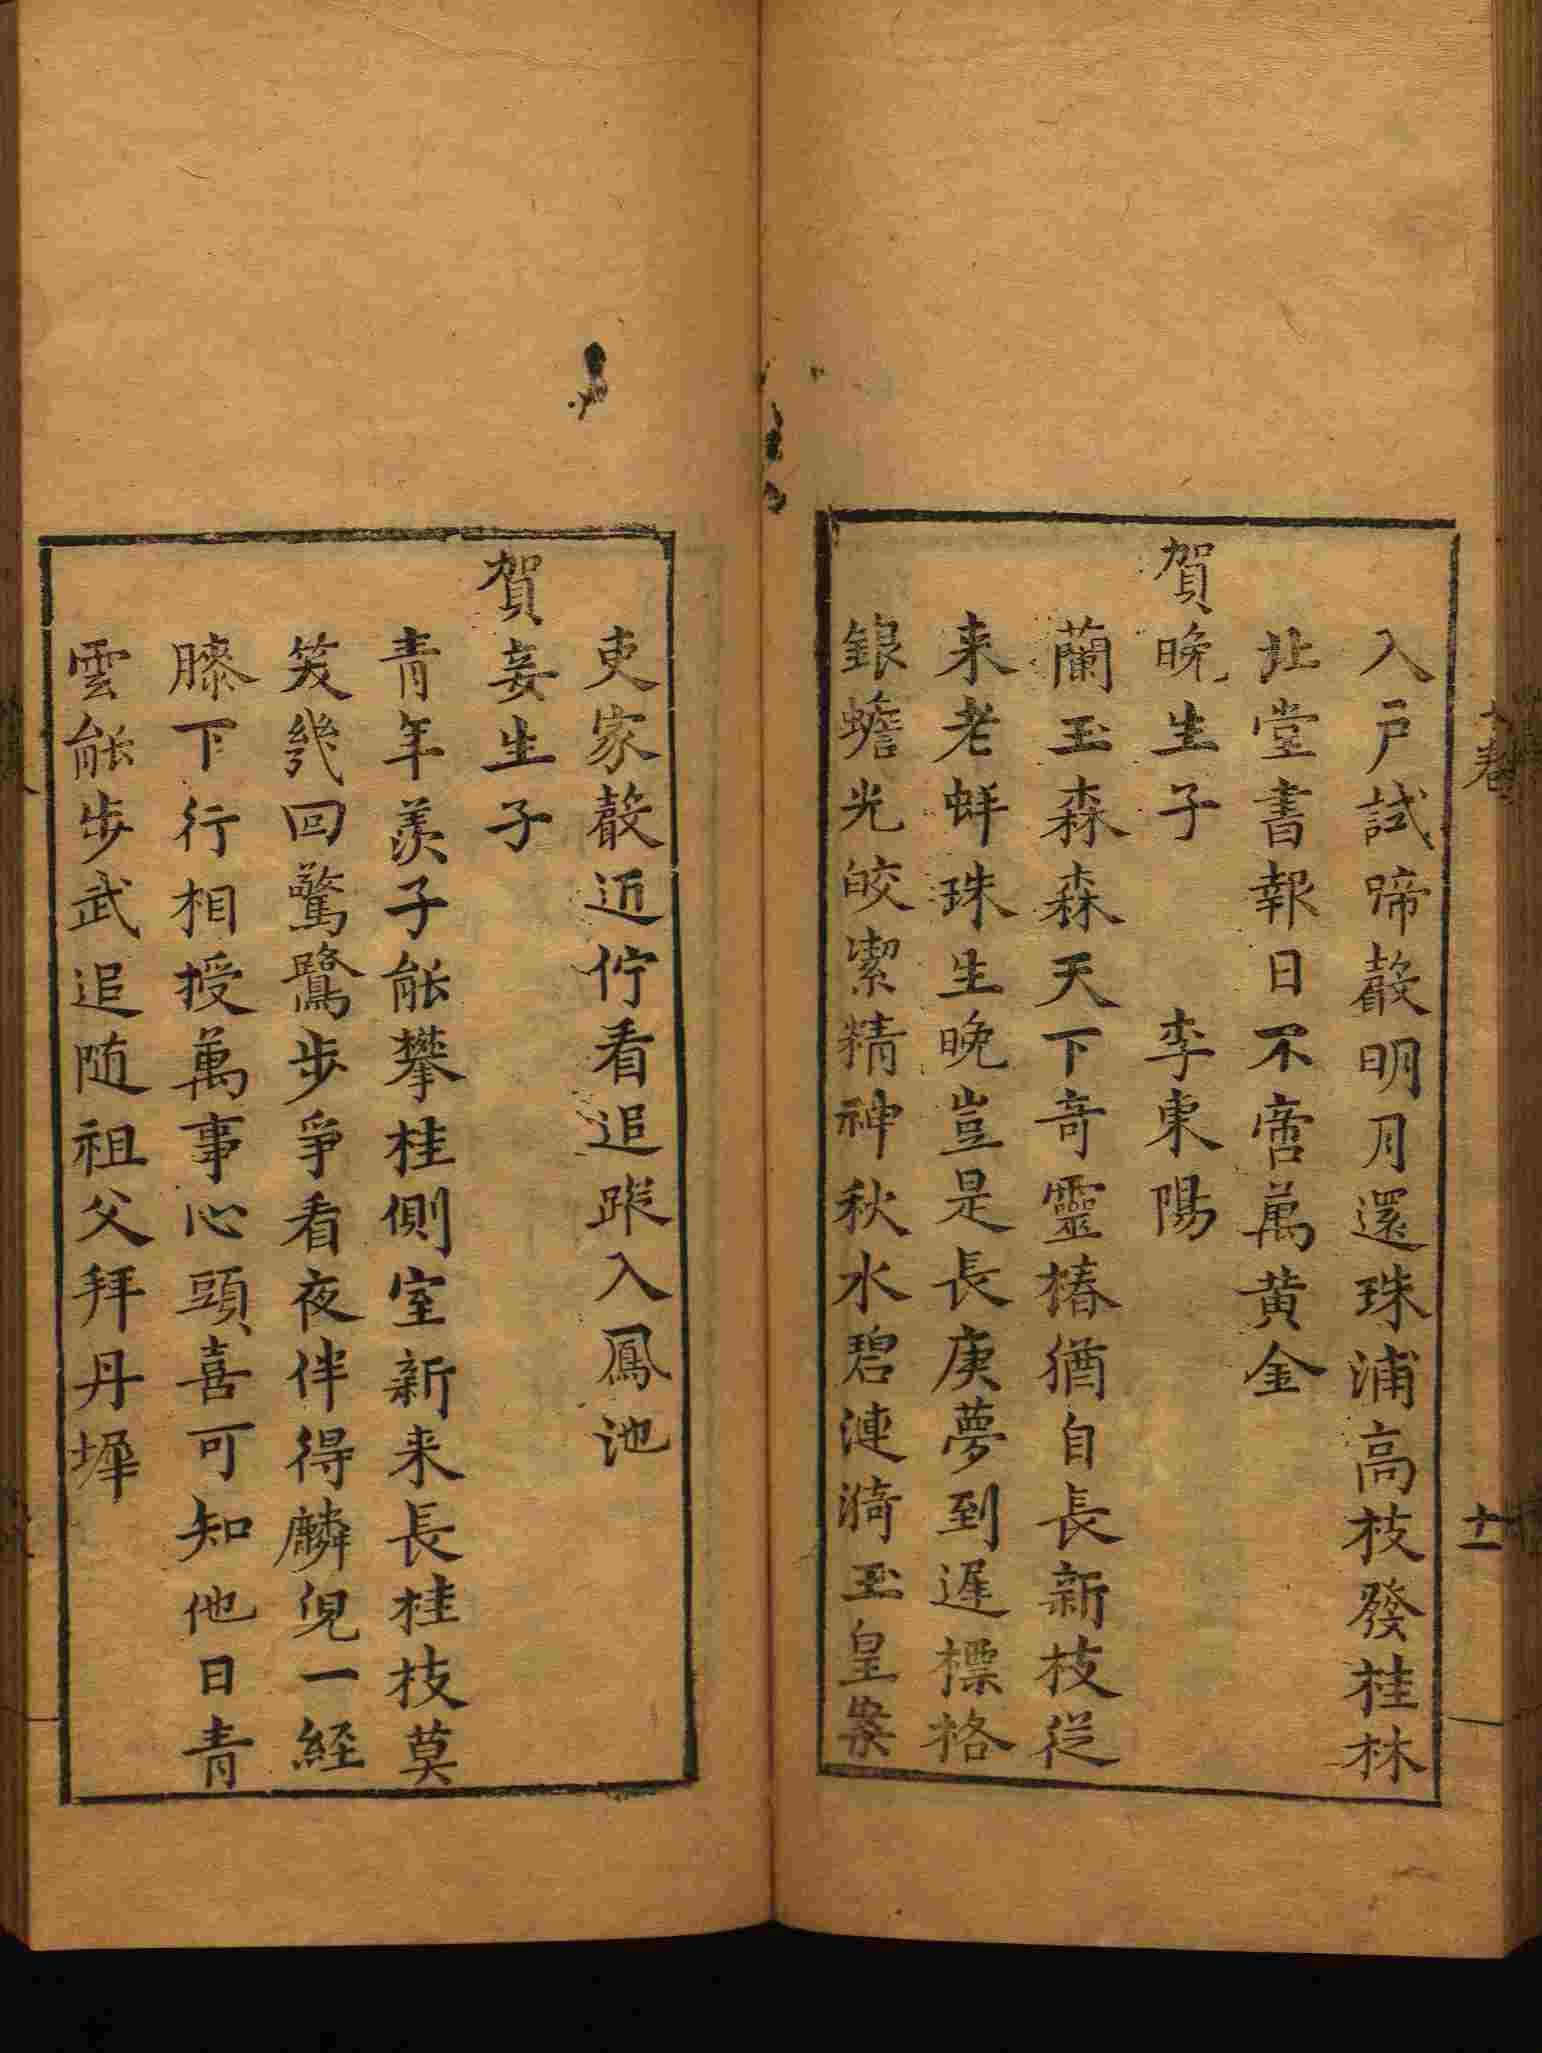 入戶試啼聲明月還珠浦高枝發桂林
北堂書報日不啻萬黃金
賀晚生子　李東陽
蘭玉森森天下奇靈椿猶自長新枝從
来老蚌珠生晚豈是長庚夢到遲標格
銀蟾光皎潔精神秋水碧漣漪玉皇案
吏家聲近佇看追蹤入鳳池
賀妾生子
青年羨子能攀桂側室新来長桂枝莫
笑幾回驚鷺步爭看夜伴得麟兒一經
膝下行相授萬事心頭喜可知他日青
雲能步武追随祖父拜丹墀
十一